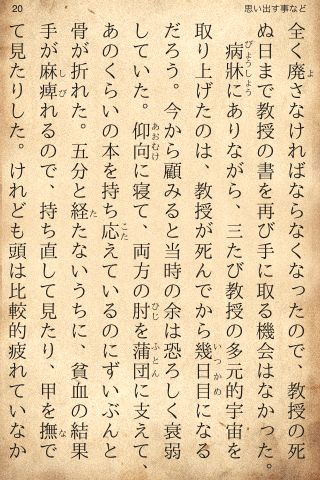 20
思い出す事など
全く廃さなければならなくなったので、教授の死
よ
ぬ日まで教授の書を再び手に取る機会はなかった。
病牀にありながら、三たび教授の多元的宇宙を
びょうしょう
取り上げたのは、教授が死んでから幾日目になる
いつかめ
だろう。今から顧みると当時の余は恐ろしく衰弱
していた。仰向に寝て、両方の肘を蒲団に支えて、
あおむけ
ひじ
ふとん
あのくらいの本を持ち応えているのにずいぶんと
こた
骨が折れた。五分と経たないうちに、貧血の結果
た
手が麻痺れるので、持ち直して見たり、甲を撫で
しび
な
て見たりした。けれども頭は比較的疲れていなか